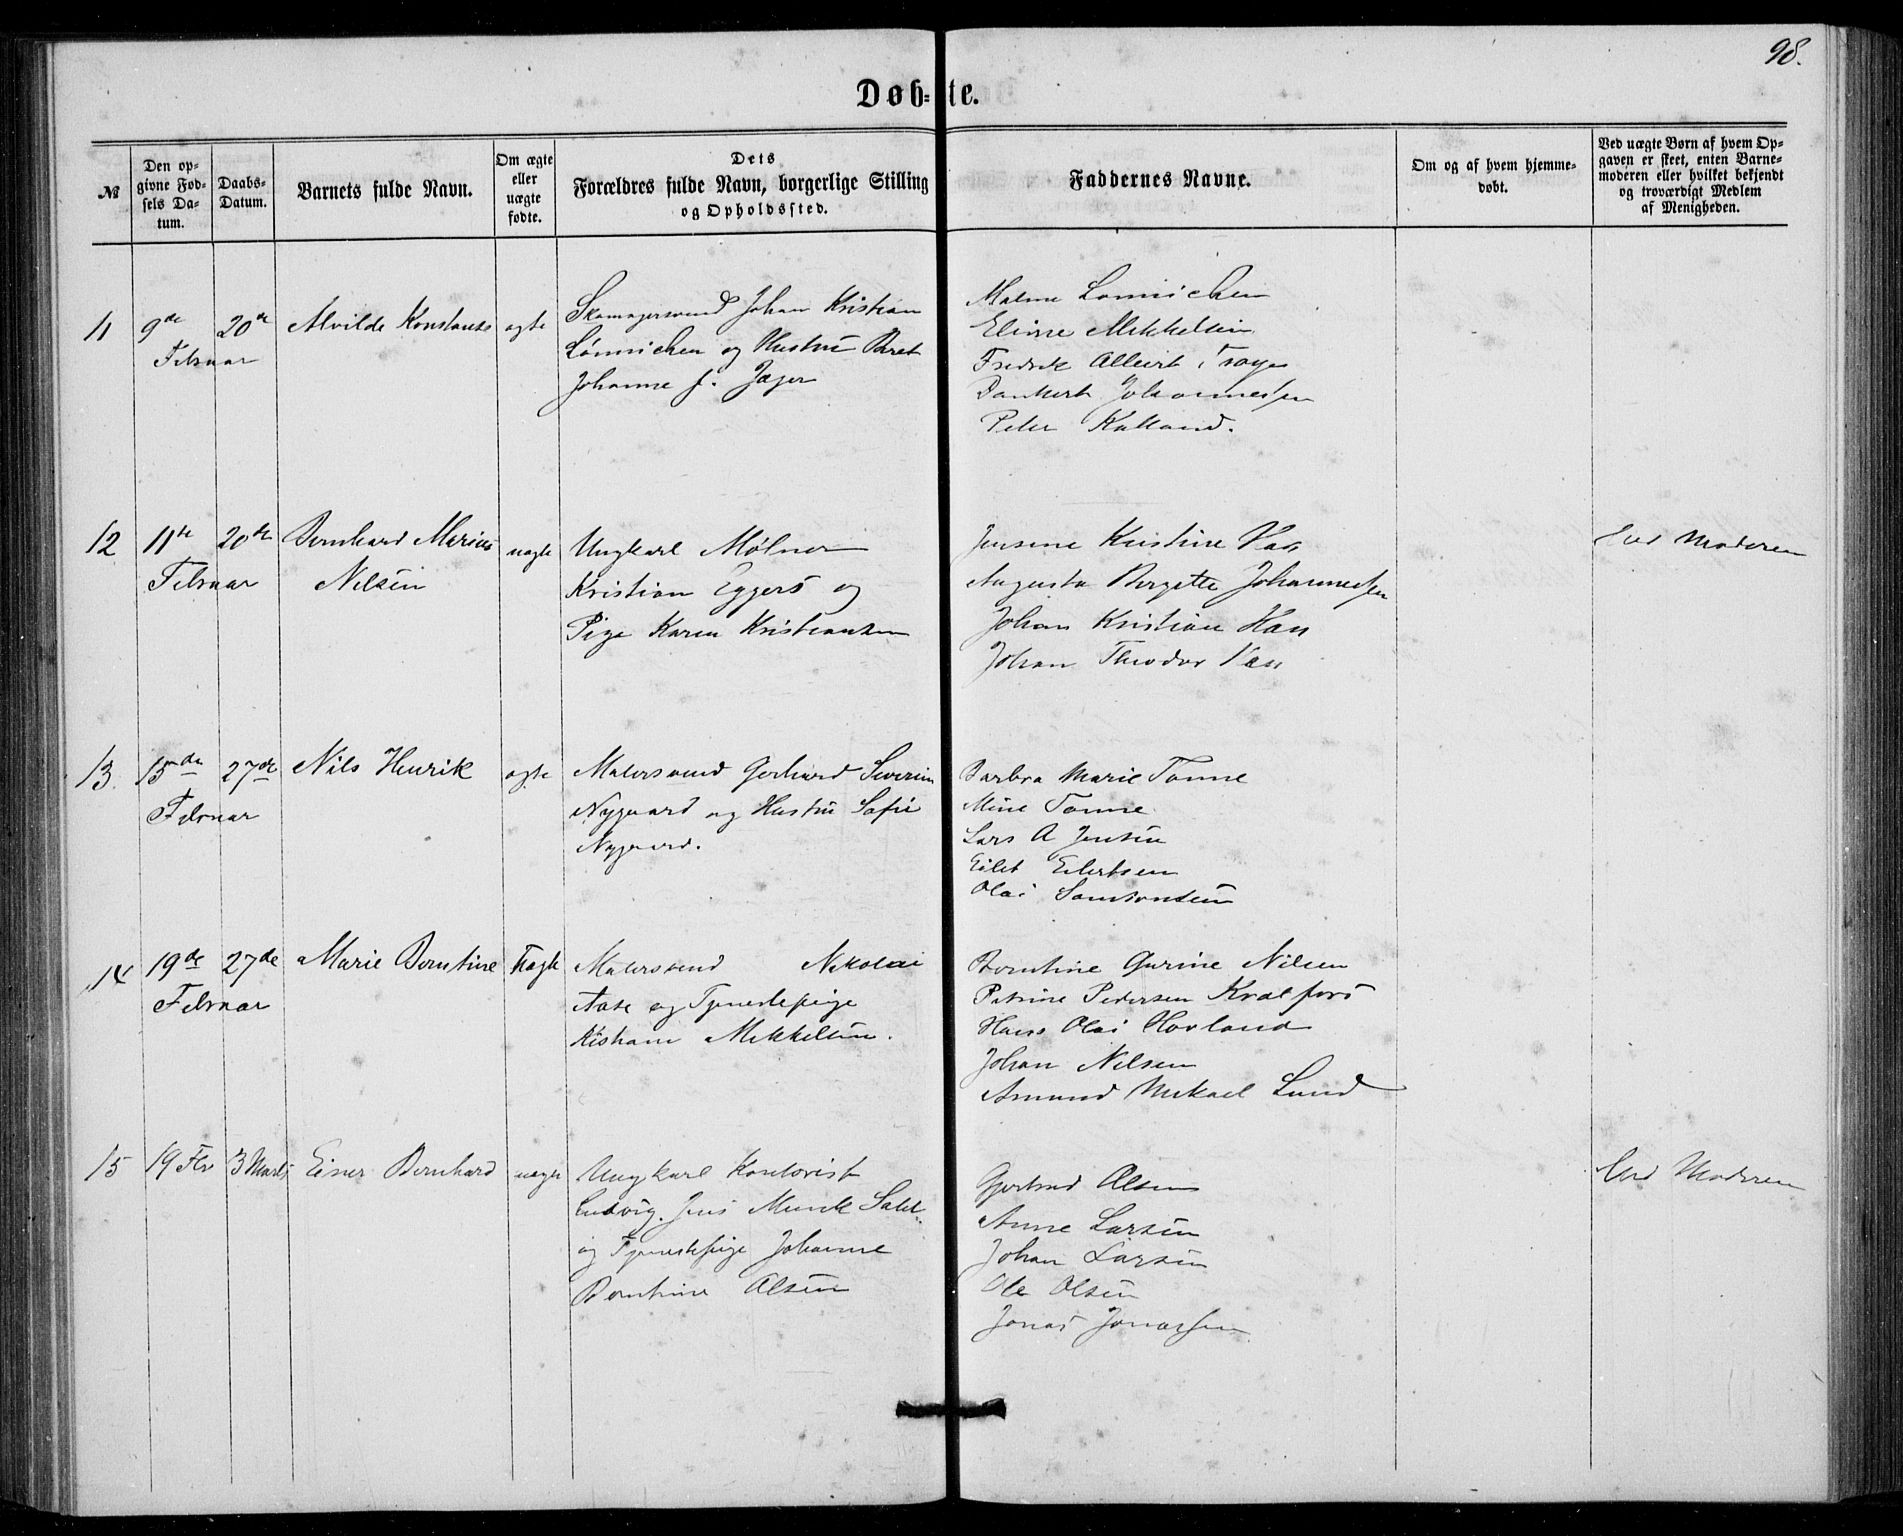 98.
Døb-te.
№
Den opgivne Fødsels Datum.
Daabs-Datum.
Barnets fulde Navn.
Om ægte eller uægte fødte.
Dets Forældres fulde Navn, borgerlige Stilling og Opholdssted.
Faddernes Navne.
Om og af hvem hjemmedøbt.
Ved uægte Børn af hvem Opgaven er skeet, enten Barnemoderen eller hvilket bekjendt og troværdigt Medlem af Menigheden.
11 9de Februar 20de Alvilde Konstanse ægte
Skomagersvend Johan Kristian
Lønnichen og Hustru Beret
Johanne f. Jæger
Malene Lønnichen
Elisse Mikkelsen
Fredrik Allert
Dankert Johannessen
Peter Kalland.
12 11te Februar 20de Bernhard Marius uægte
Nilsen
Ungkarl Mølner
Kristian Eggers og
Pige Karen Kristiansen
Jensine Kristine Has
Augusta Bergitte Johannessen
Johan Kristian Has
Johan Theodor Has
ved Moderen
13. 15de Februar 27de Nils Henrik ægte
Malersvend Gerhard Severin
Nygaard og Hustru Sofie
Nygaard.
Barbra Marie Tonne
Mine Tonne
Lars A Jensen
Eilet Eilertsen
Olai Samsonsen
14 19de Februar 27de Marie Berntine uægte
Malersvend Nikolai
Aase og Tjenestepige
Kishani Mikkelsen.
Berntine Gurine Nilsen
Petrine Pedersen Kralfors
Hans Olai Hovland
Johan Nilsen
Amund Mikael Lund
15 19 Feb 3 Marts Einer Bernhard uægte
Ungkarl Kontorist
Ludvig Jens Munck
og Tjenestepige Johanne
Berntine Olsen
Gjertrud Olsen
Anne Larsen
Johan Larsen
Ole Olsen
Jonas Jonassen
ved Moderen